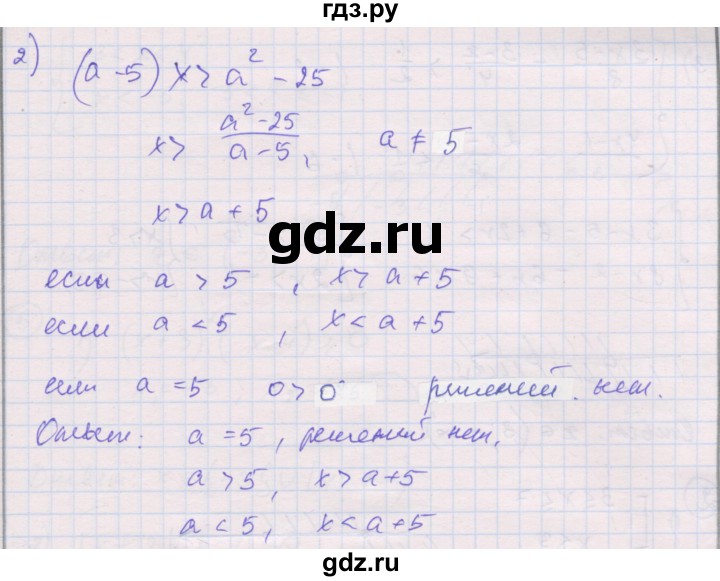 гдз.ру
2) (a-5) x > a² - 25
x > a²-25 / a-5, a ≠ 5
x > a + 5
gdz.ru
если a > 5, x > a + 5
если a < 5, x < a + 5
если a = 5 0 > 0 решений. нет.
Ответ: a = 5, решений нет,
a > 5, x > a+5
a < 5, x < a+5
gdz.ru